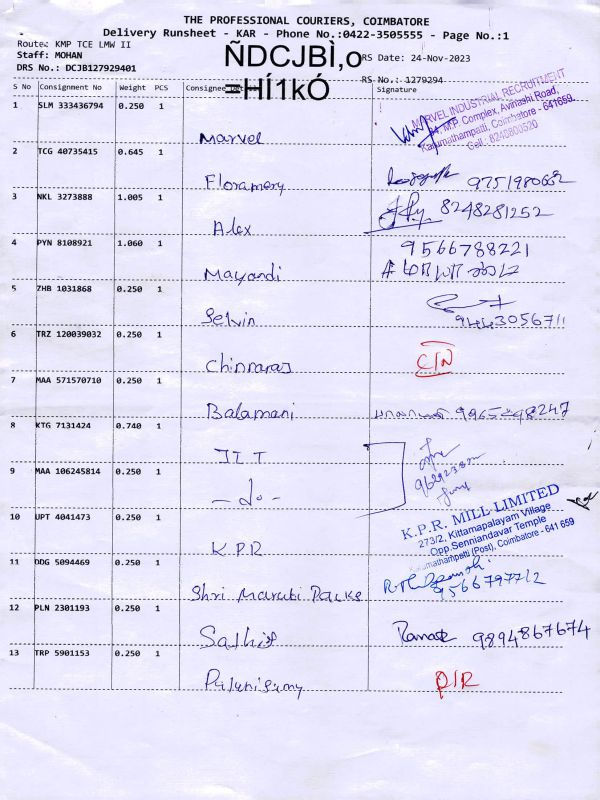 THE PROFESSIONAL COURIERS, COIMBATORE
Delivery Runsheet - KAR - Phone No.:0422-3505555 - Page No.:1
Route: KMP TCE LMW II
Staff: MOHAN
DRS No.: DCJB127929401
ÑDCJBÌ,o
=HÍ1kÓ
RS Date: 24-Nov-2023
RS No.: 1279294
S No Consignment No Weight PCS Consignee Signature
1 SLM 333436794 0.250 1
Marvel
MARVEL INDUSTRIAL RECRUITMENT
M.P Complex, Avinashi Road,
Karumathampatti, Coimbatore - 641659.
Cell : 8240800520
2 TCG 40735415 0.645 1
Floramery 9751980662
3 NKL 3273888 1.005 1
Alex 8248281252
4 PYN 8108921 1.060 1
Mayandi
9566788221
5 ZHB 1031868 0.250 1
Selvin
6 TRZ 120039032 0.250 1
Chinnaraj C/N
7 MAA 571570710 0.250 1
Balamani
8 KTG 7131424 0.740 1
9 MAA 106245814 0.250 1
- do -
10 UPT 4041473 0.250 1
K.P.R
K.P.R. MILL LIMITED
273/2, Kittampalayam Village
Opp.Senniandavar Temple
Karumathampatti (Post), Coimbatore - 641 659
11 DDG 5094469 0.250 1
Shri Maruti Packe 9566797712
12 PLN 2301193 0.250 1
Sathis Ramesh 9894867674
13 TRP 5901153 0.250 1
Palanisamy